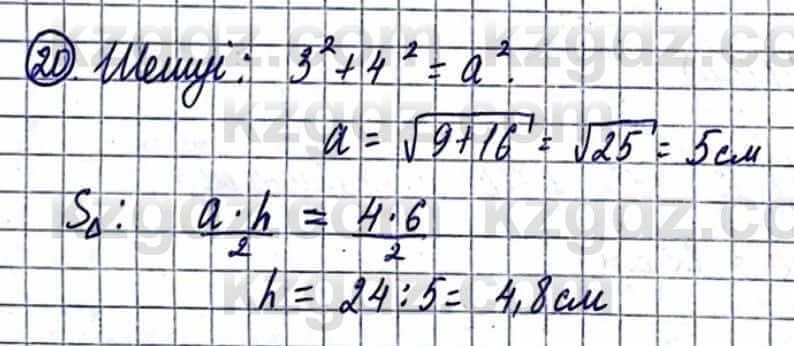 20. Шешуі: 3² + 4² = a².
a = √9+16 = √25 = 5см
S△: a·h/2 = 4·6/2
h = 24:5 = 4,8см
kzgdz.com